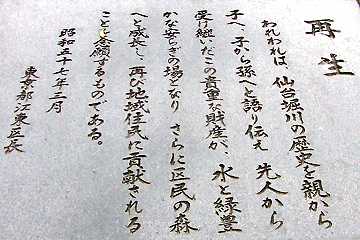 再生
われわれは、仙台堀川の歴史を親から
子へ 子から孫へと語り伝え 先人から
受け継いだこの貴重な財産が、水と緑豊
かな安らぎの場となり さらに区民の森
へと成長し、再び地域住民に貢献される
ことを念願するものである。
昭和五十七年三月
東京都江東区長